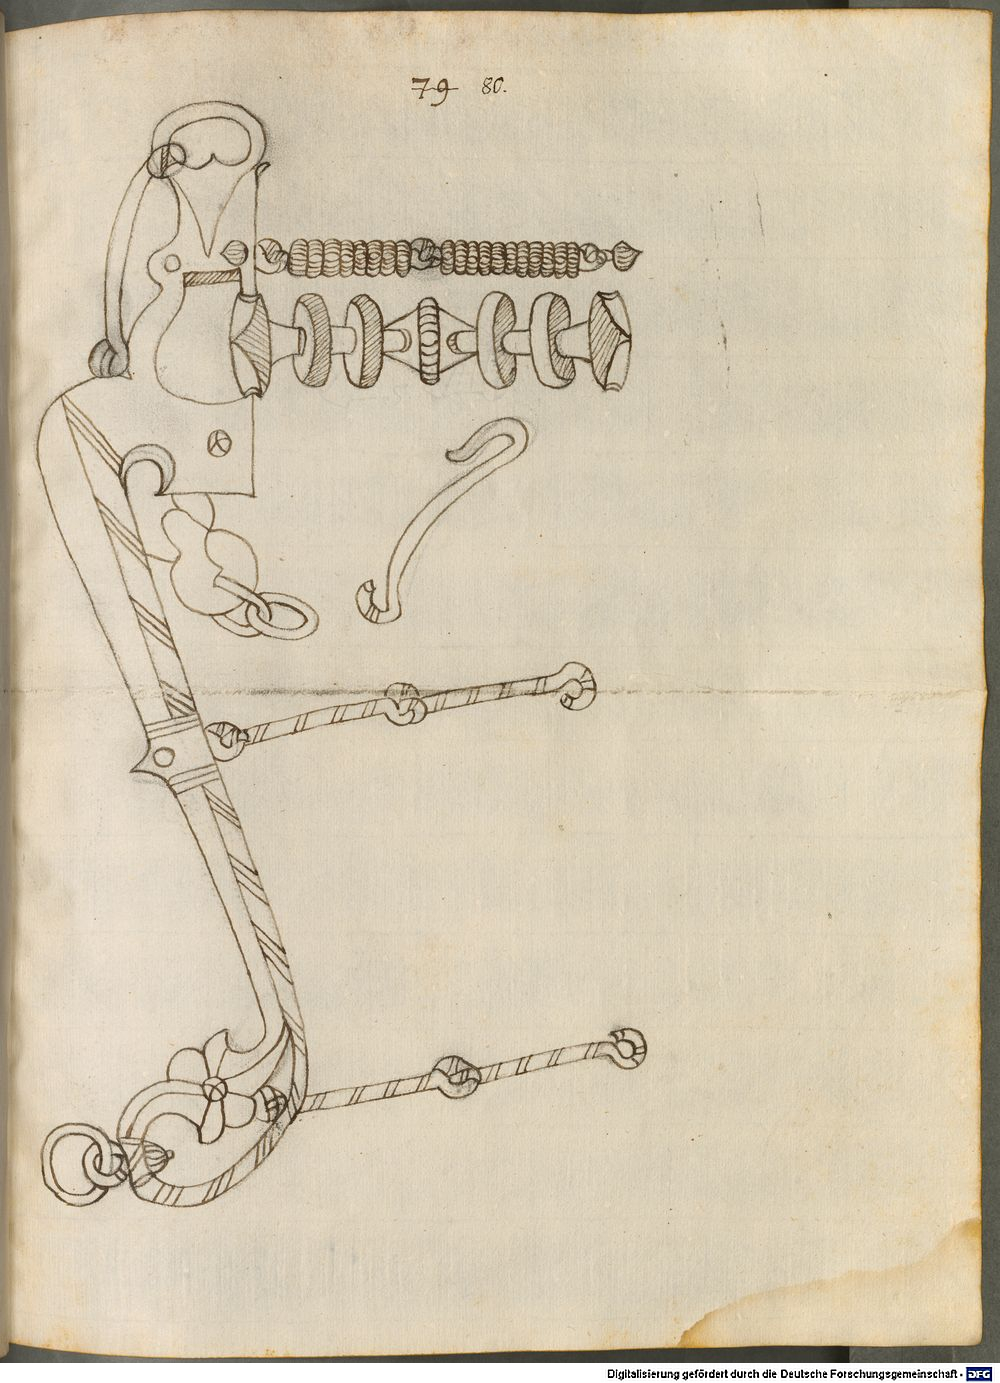 79 80.
Digitalisierung gefördert durch die Deutsche Forschungsgemeinschaft - DFG